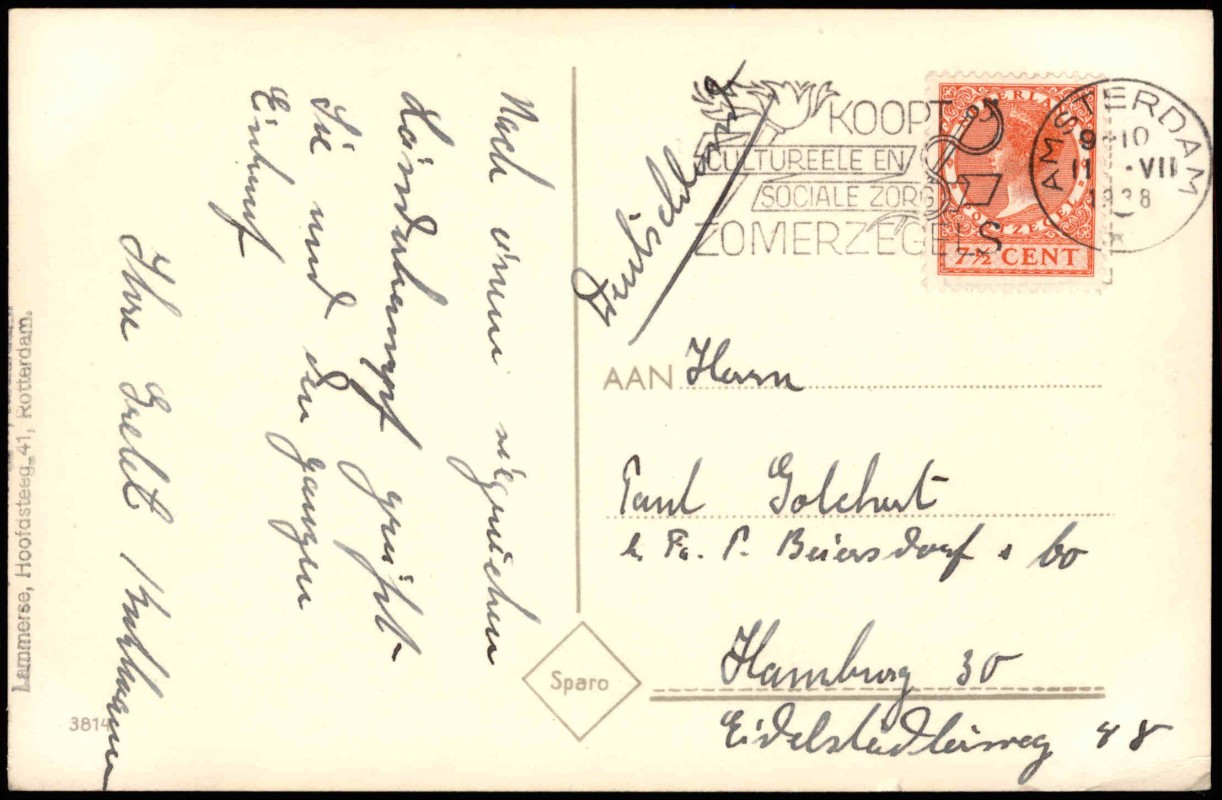 Nach einem siegreichen
Länderkampf grüßt
Sie und die ganzen
Einkauf
Ihre Gretel
Deutschland
KOOPT
CULTUREELE EN
SOCIALE ZORG
ZOMERZEGELS
AMSTERDAM
9-10
11 ·VII
1938
7½ CENT
AAN Herrn
Paul
i. Fa. P. Beiersdorf & Co
Hamburg 30
Eidelstedterweg 48
Sparo
3814
Lammerse, Hoofdsteeg 41, Rotterdam.